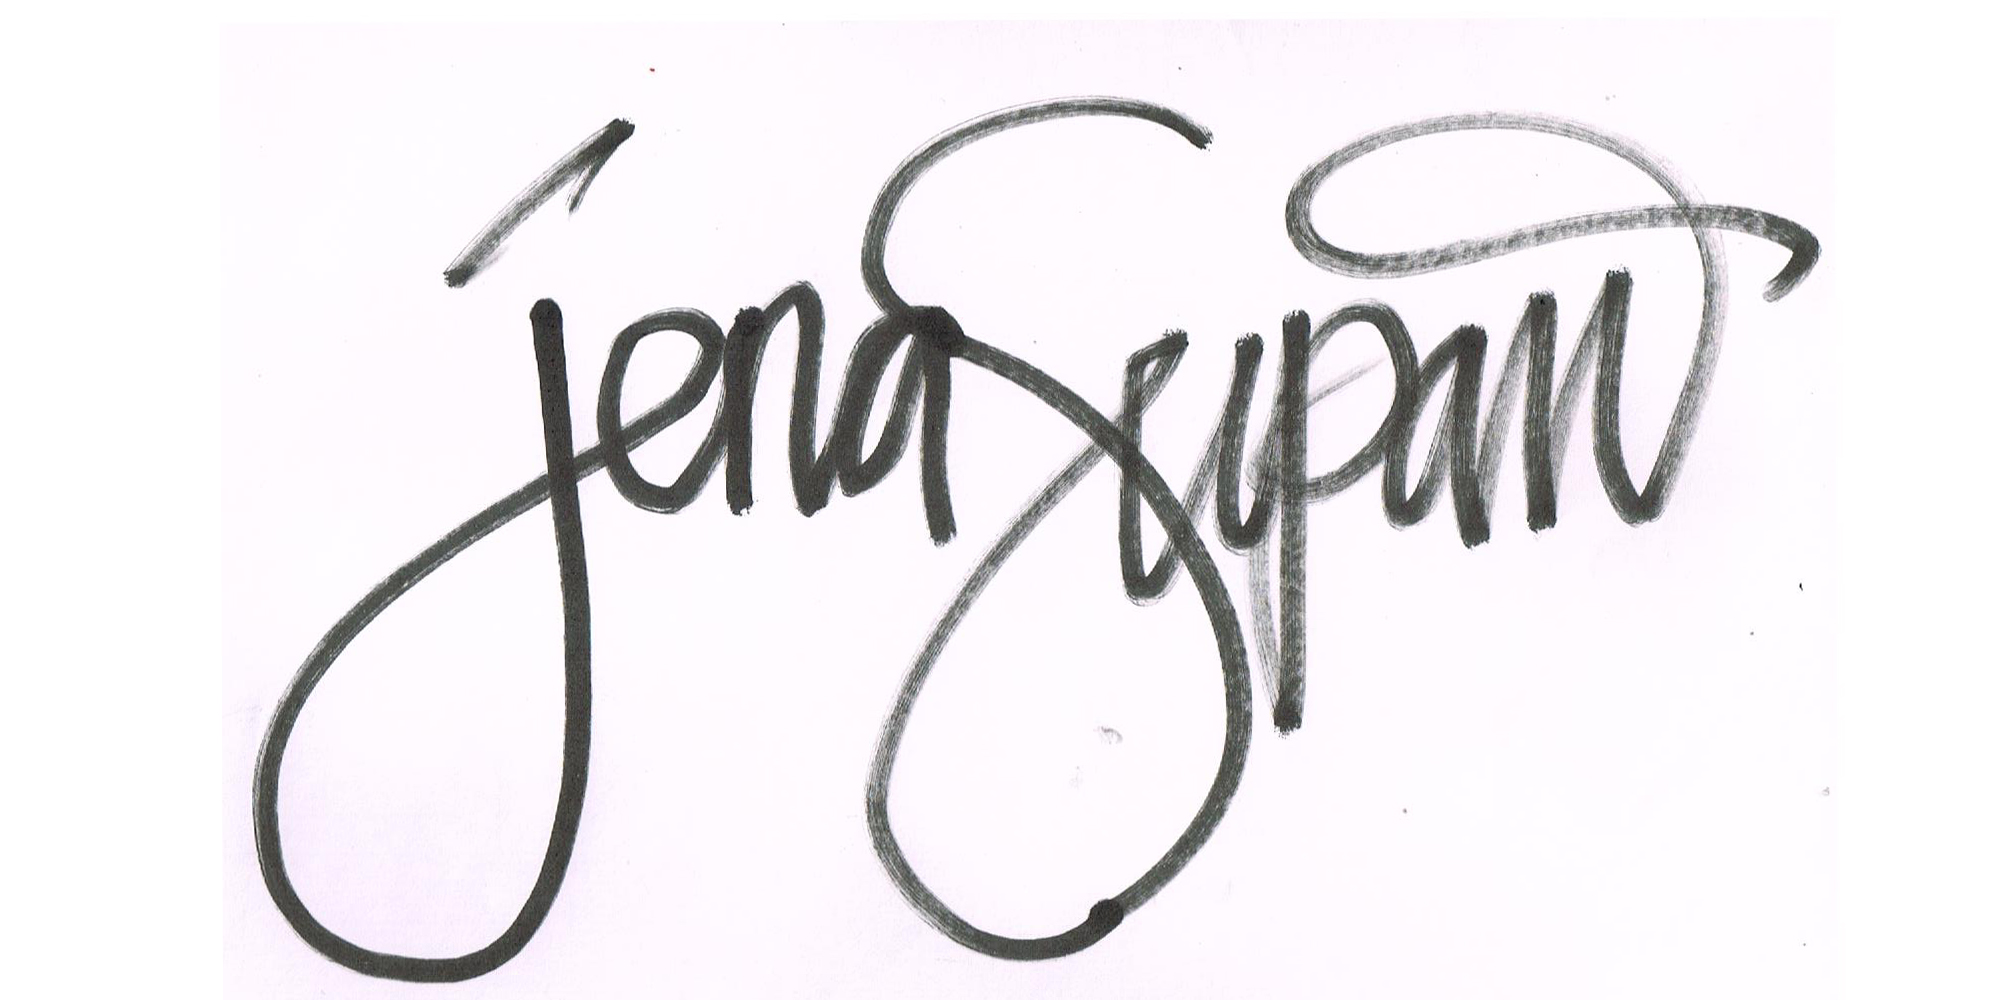 jena Supan